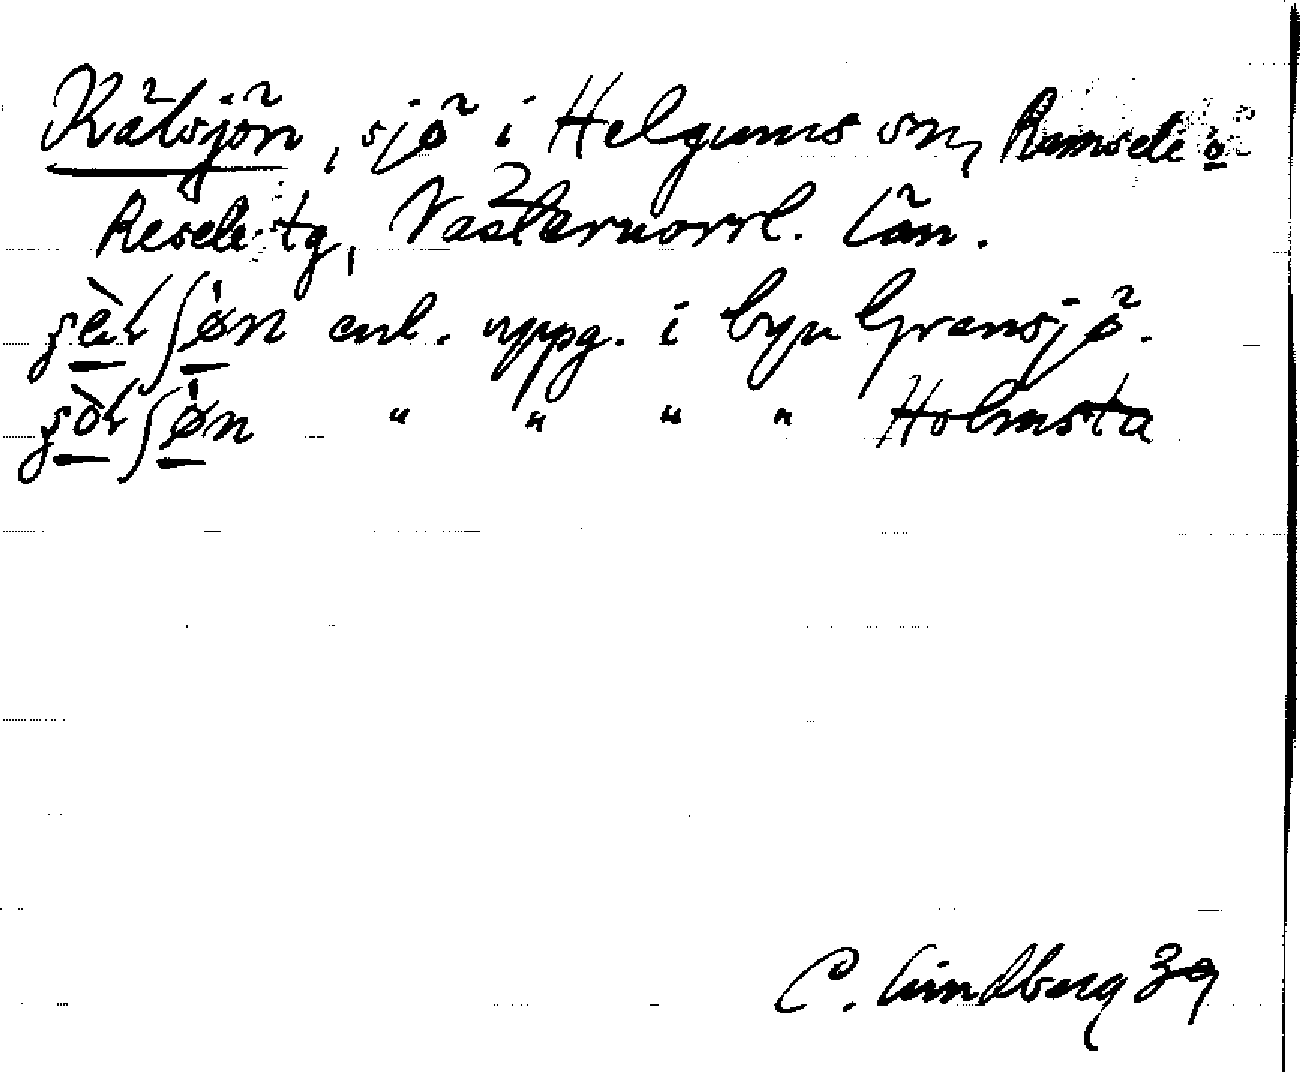 Kälsjön, sjö i Helgums sn, Ramsele o
Resele tg, Västernorrl. län.
enl. uppg. i byn Gransjö.
" " " " Holmsta
C. Lindberg 39